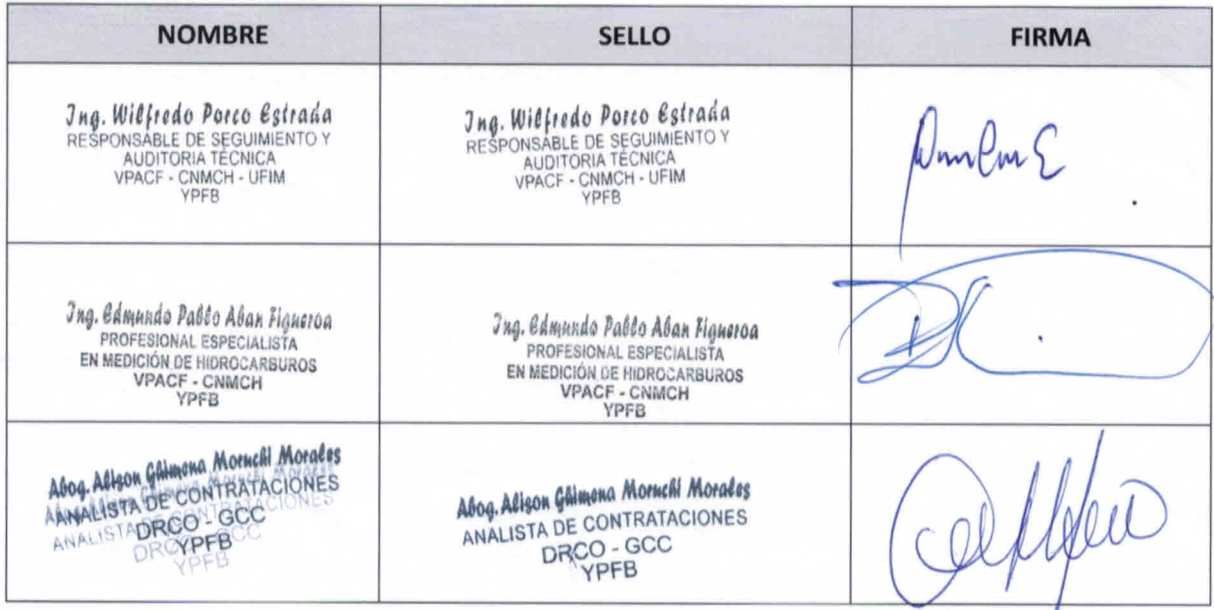 NOMBRE
SELLO
FIRMA
Ing. Wilfredo Porco Estrada
RESPONSABLE DE SEGUIMIENTO Y
AUDITORIA TÉCNICA
VPACF - CNMCH - UFIM
YPFB
Ing. Wilfredo Porco Estrada
RESPONSABLE DE SEGUIMIENTO Y
AUDITORIA TÉCNICA
VPACF - CNMCH - UFIM
YPFB
Ing. Edmundo Pablo Aban Figueroa
PROFESIONAL ESPECIALISTA
EN MEDICIÓN DE HIDROCARBUROS
VPACF - CNMCH
YPFB
Ing. Edmundo Pablo Aban Figueroa
PROFESIONAL ESPECIALISTA
EN MEDICIÓN DE HIDROCARBUROS
VPACF - CNMCH
YPFB
Abog. Alison Ghimena Moruchi Morales
ANALISTA DE CONTRATACIONES
DRCO - GCC
YPFB
Abog. Alison Ghimena Moruchi Morales
ANALISTA DE CONTRATACIONES
DRCO - GCC
YPFB